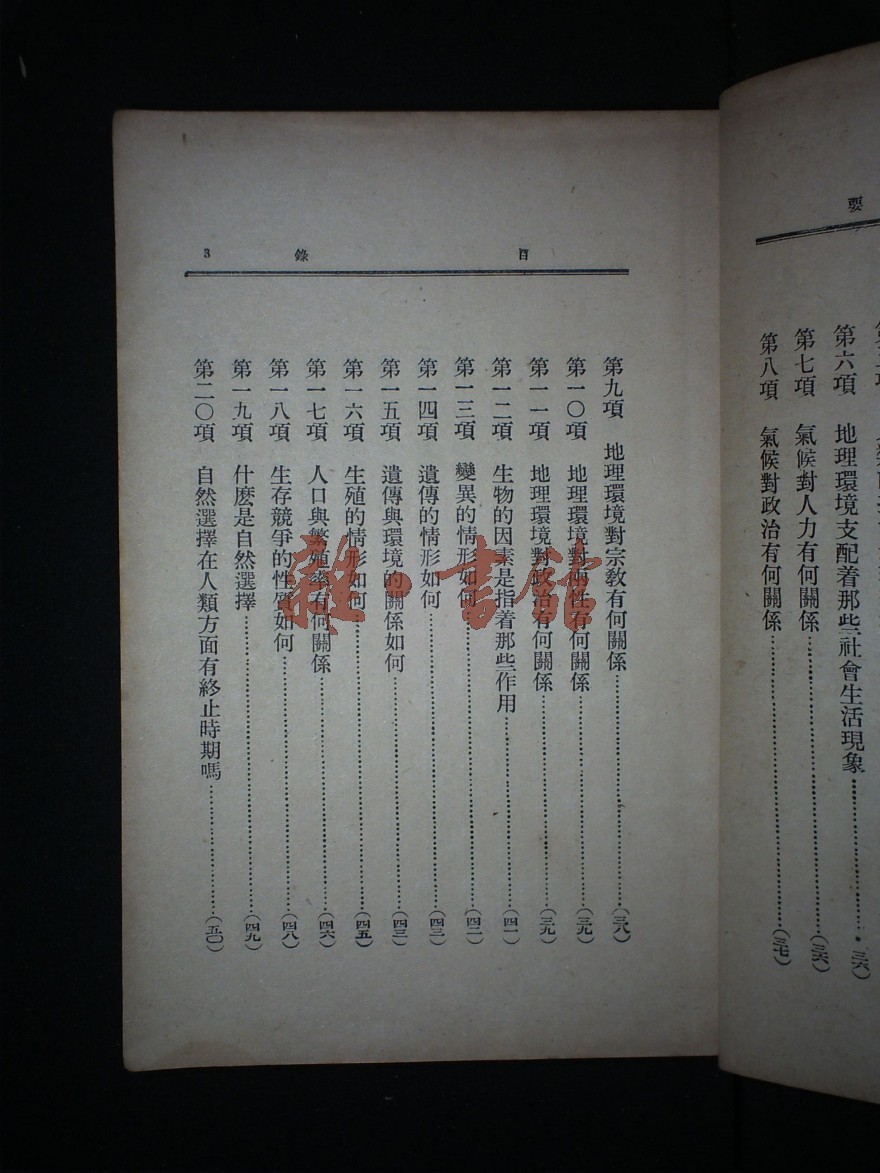 要
第六項 地理環境支配着那些社會生活現象…………(三六)
第七項 氣候對人力有何關係…………(三六)
第八項 氣候對政治有何關係…………(三七)
目錄 3
第九項 地理環境對宗教有何關係…………(三八)
第一〇項 地理環境對兩性有何關係…………(三九)
第一一項 地理環境對政治有何關係…………(三九)
第一二項 生物的因素是指着那些作用…………(四一)
第一三項 變異的情形如何…………(四二)
第一四項 遺傳的情形如何…………(四三)
第一五項 遺傳與環境的關係如何…………(四三)
第一六項 生殖的情形如何…………(四五)
第一七項 人口與繁殖率有何關係…………(四六)
第一八項 生存競爭的性質如何…………(四八)
第一九項 什麼是自然選擇…………(四九)
第二〇項 自然選擇在人類方面有終止時期嗎…………(五〇)
雜·書館